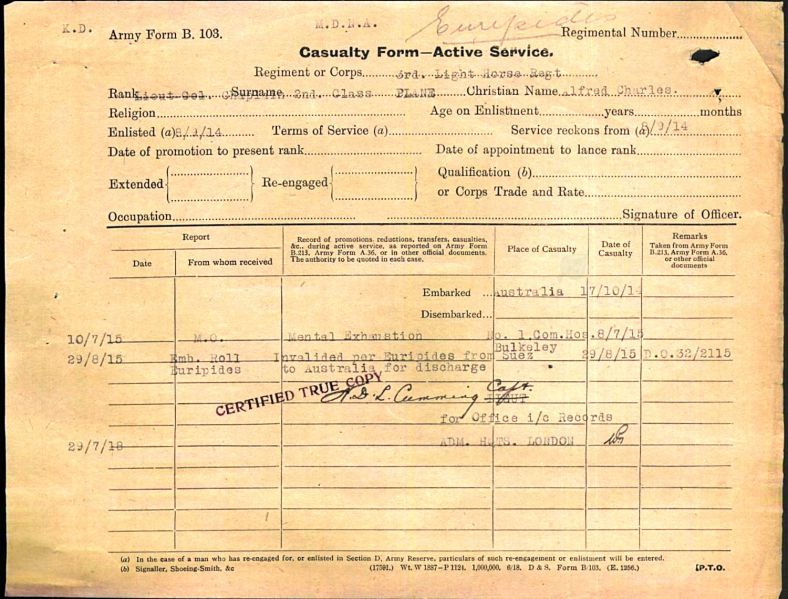 K.D. Army Form B. 103. M.D.N.A. Euripides Regimental Number
Casualty Form—Active Service.
Regiment or Corps 3rd. Light Horse Regt
Rank Lieut-Col. Chaplain 2nd. Class Surname PLANE Christian Name Alfred Charles.
Religion Age on Enlistment years months
Enlisted (a) 8/9/14 Terms of Service (a) Service reckons from (a) 8/9/14
Date of promotion to present rank Date of appointment to lance rank
Extended Re-engaged Qualification (b)
or Corps Trade and Rate
Occupation Signature of Officer.
Report
Date From whom received
Record of promotions, reductions, transfers, casualties,
&c., during active service, as reported on Army Form
B.213, Army Form A.36, or in other official documents.
The authority to be quoted in each case.
Place of Casualty
Date of
Casualty
Remarks
Taken from Army Form
B.213, Army Form A.36,
or other official
documents
Embarked Australia 17/10/14
Disembarked
10/7/15 M.O. Mental Exhaustion No. 1 Com.Hos. 8/7/15
Bulkeley
29/8/15 Emb. Roll Invalided per Euripides from Suez 29/8/15 D.O.32/2115
Euripides to Australia for discharge
CERTIFIED TRUE COPY
D. L. Cumming Capt.
LIEUT
for Office i/c Records
29/7/18 ADM. HQTS. LONDON
(a) In the case of a man who has re-engaged for, or enlisted in Section D, Army Reserve, particulars of such re-engagement or enlistment will be entered.
(b) Signaller, Shoeing-Smith, &c (17591.) Wt. W 1887—P 1124. 1,000,000. 6/18. D & S. Form B/103. (E. 1256.) [P.T.O.